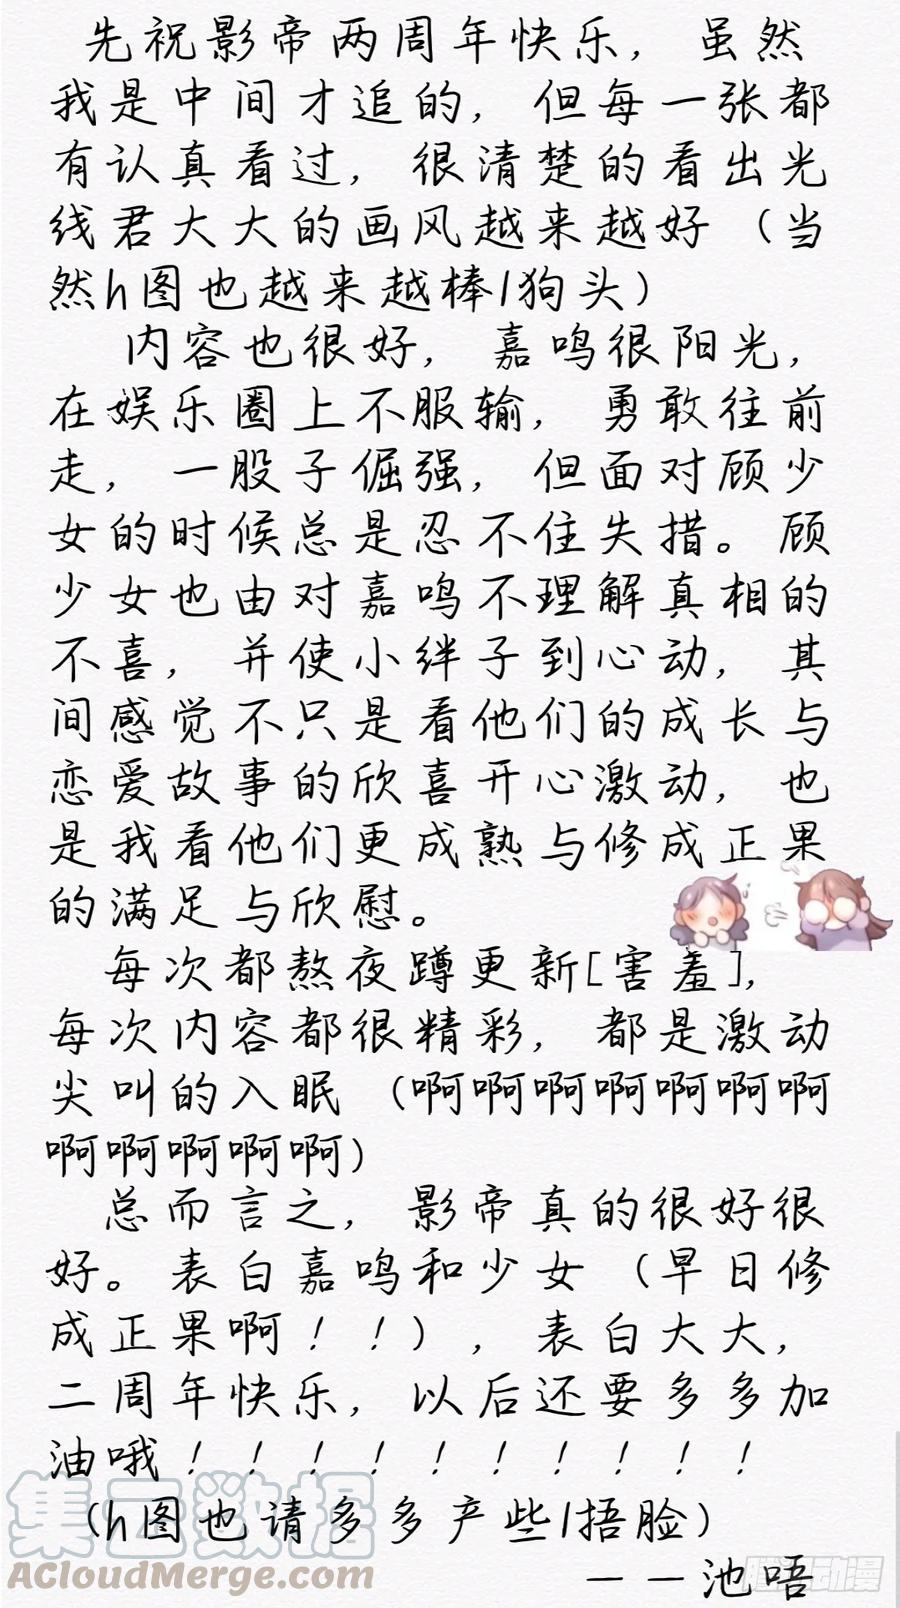 先祝影帝两周年快乐，虽然
我是中间才追的，但每一张都
有认真看过，很清楚的看出光
线君大大的画风越来越好（当
然h图也越来越棒/狗头）
内容也很好，嘉鸣很阳光，
在娱乐圈上不服输，勇敢往前
走，一股子倔强，但面对顾少
女的时候总是忍不住失措。顾
少女也由对嘉鸣不理解真相的
不喜，并使小绊子到心动，其
间感觉不只是看他们的成长与
恋爱故事的欣喜开心激动，也
是我看他们更成熟与修成正果
的满足与欣慰。
每次都熬夜蹲更新[害羞]，
每次内容都很精彩，都是激动
尖叫的入眠（啊啊啊啊啊啊啊
啊啊啊啊啊）
总而言之，影帝真的很好很
好。表白嘉鸣和少女（早日修
成正果啊！！），表白大大，
二周年快乐，以后还要多多加
油哦！！！！！！！！！！
（h图也请多多产些/捂脸）
——池唔
集云数据
ACloudMerge.com
腾讯动漫